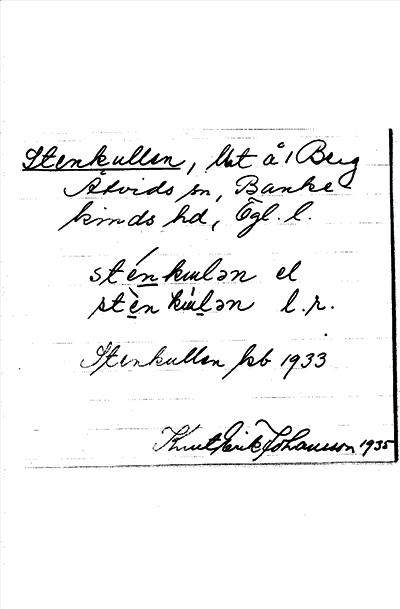 Stenkullen, lht å 1 Berg
Åtvids sn, Banke
kinds hd, Ögl. l.
sténkɯlən el
stènkɯ̀lən l.r.
Stenkullen kb 1933
Knut Erik Johansson 1935